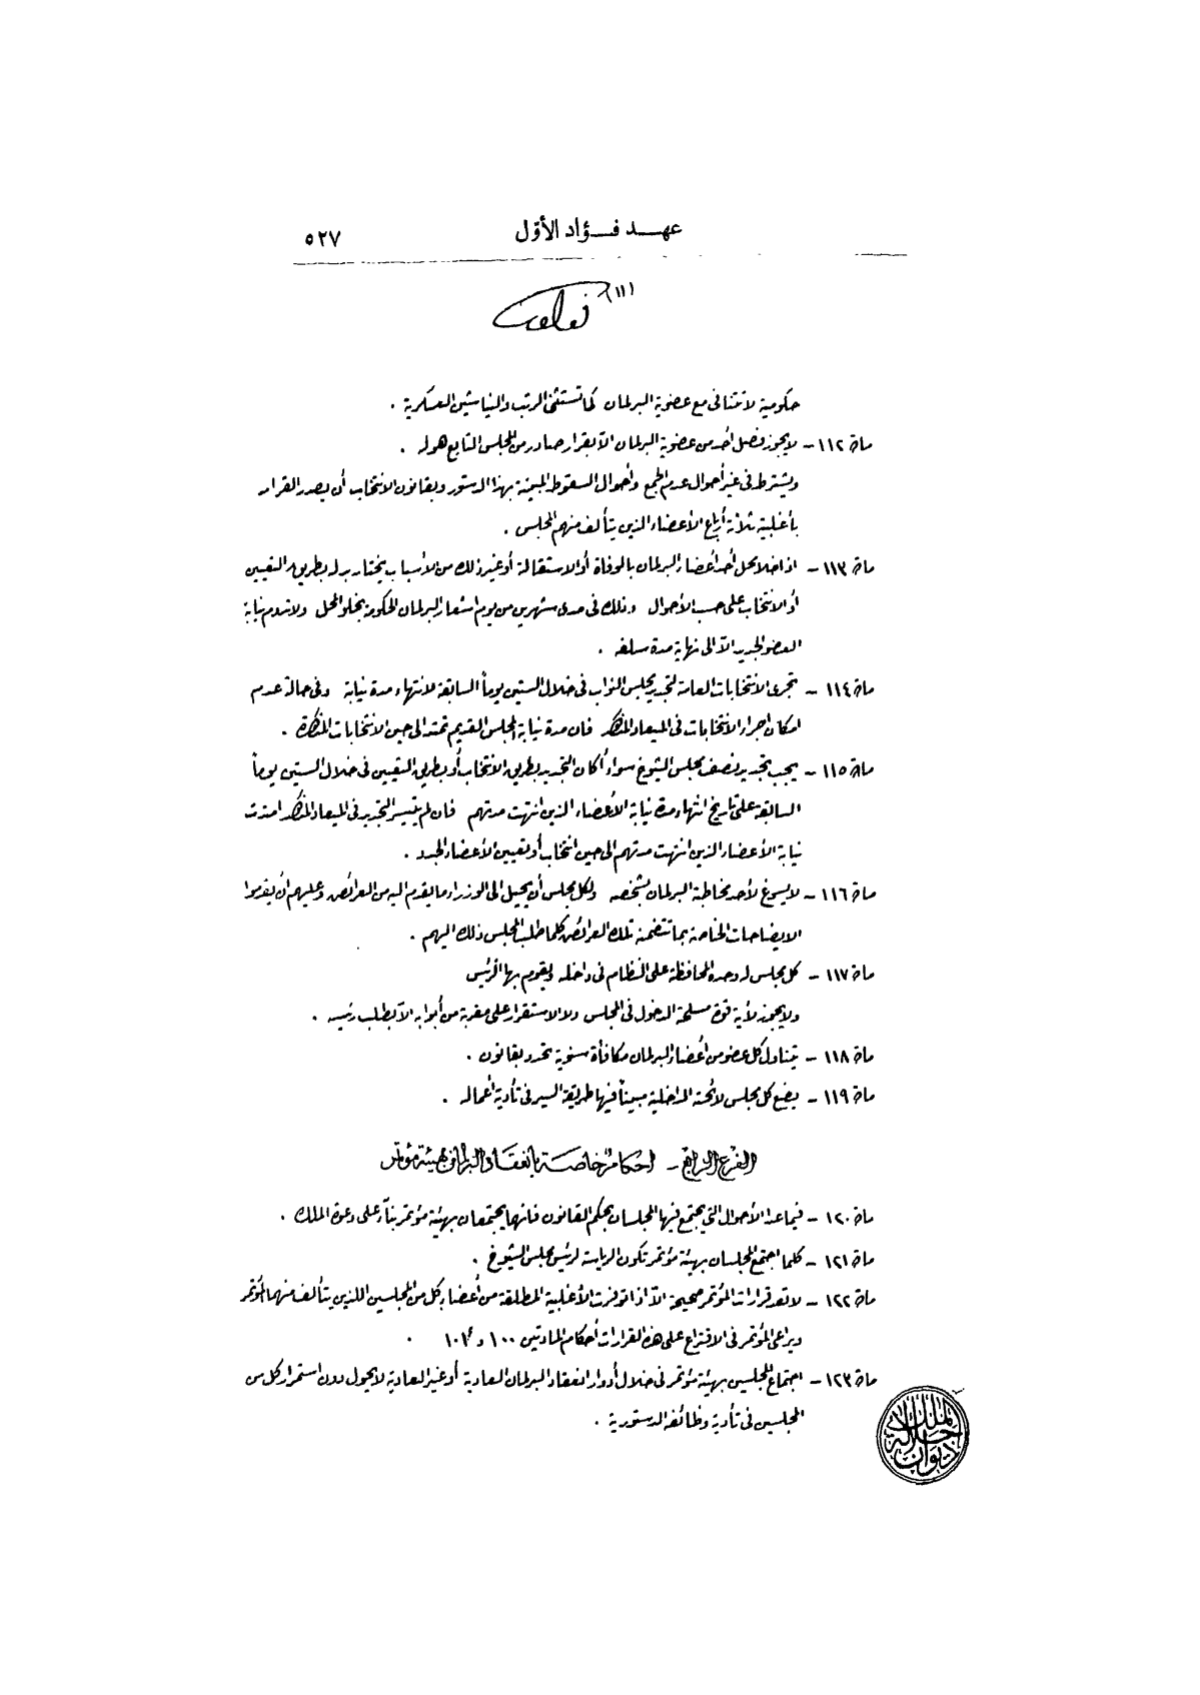 عهد فؤاد الأول
٥٢٧
(١١)
حكومية لا تتنافى مع عضوية البرلمان كما تستثنى الرتب والنياشين العسكرية .
مادة ١١٢ – لا يجوز فصل أحد من عضوية البرلمان الا بقرار صادر من المجلس التابع هو له .
ويشترط فى غير أحوال عدم الجمع وأحوال السقوط المبينة بهذا الدستور وبقانون الانتخاب أن يصدر القرار
بأغلبية ثلاثة أرباع الأعضاء الذين يتألف منهم المجلس .
مادة ١١٣ – اذا خلا محل أحد أعضاء البرلمان بالوفاة أو الاستقالة أو غير ذلك من الأسباب يختار بدله بطريق التعيين
أو الانتخاب على حسب الأحوال وذلك فى مدى شهرين من يوم اشعار البرلمان الحكومة بخلو المحل ولا تدوم نيابة
العضو الجديد الا الى نهاية مدة سلفه .
مادة ١١٤ – تجرى الانتخابات العامة لتجديد مجلس النواب فى خلال الستين يوماً السابقة لانتهاء مدة نيابة وفى حالة عدم
امكان اجراء الانتخابات فى الميعاد المذكور فان مدة نيابة المجلس القديم تمتد الى حين الانتخابات المذكورة .
مادة ١١٥ – يجب تجديد نصف مجلس الشيوخ سواء أكان التجديد بطريق الانتخاب أو بطريق التعيين فى خلال الستين يوماً
السابقة على تاريخ انتهاء مدة نيابة الأعضاء الذين انتهت مدتهم فان لم يتيسر التجديد فى الميعاد المذكور امتدت
نيابة الأعضاء الذين انتهت مدتهم الى حين انتخاب أو تعيين الأعضاء الجدد .
مادة ١١٦ – لا يسوغ لأحد مخاطبة البرلمان بشخصه ولكل مجلس أن يحيل الى الوزراء ما يقدم اليه من العرائض وعليهم أن يقدموا
الايضاحات الخاصة بما تتضمنه تلك العرائض كلما طلب المجلس ذلك اليهم .
مادة ١١٧ – كل مجلس له وحده المحافظة على النظام فى داخله ويقوم بها الرئيس
ولا يجوز لأية قوة مسلحة الدخول فى المجلس ولا الاستقرار على مقربة من أبوابه الا بطلب رئيسه .
مادة ١١٨ – يتناول كل عضو من أعضاء البرلمان مكافأة سنوية تحدد بقانون .
مادة ١١٩ – يضع كل مجلس لائحته الداخلية مبيناً فيها طريقة السير فى تأدية أعماله .
الفرع الرابع – احكام خاصة بانعقاد البرلمان بهيئة مؤتمر
مادة ١٢٠ – فيما عدا الأحوال التى يجتمع فيها المجلسان بحكم القانون فانهما يجتمعان بهيئة مؤتمر بناءً على دعوة الملك .
مادة ١٢١ – كلما اجتمع المجلسان بهيئة مؤتمر تكون الرياسة لرئيس مجلس الشيوخ .
مادة ١٢٢ – لا تعد قرارات المؤتمر صحيحة الا اذا توفرت الأغلبية المطلقة من أعضاء كل من المجلسين اللذين يتألف منهما المؤتمر
ويراعى المؤتمر فى الاقتراع على هذه القرارات أحكام المادتين ١٠٠ و ١٠١ .
مادة ١٢٣ – اجتماع المجلسين بهيئة مؤتمر فى خلال أدوار انعقاد البرلمان العادية أو غير العادية لا يحول دون استمرار كل من
المجلسين فى تأدية وظائفه الدستورية .
ديوان جلالة الملك